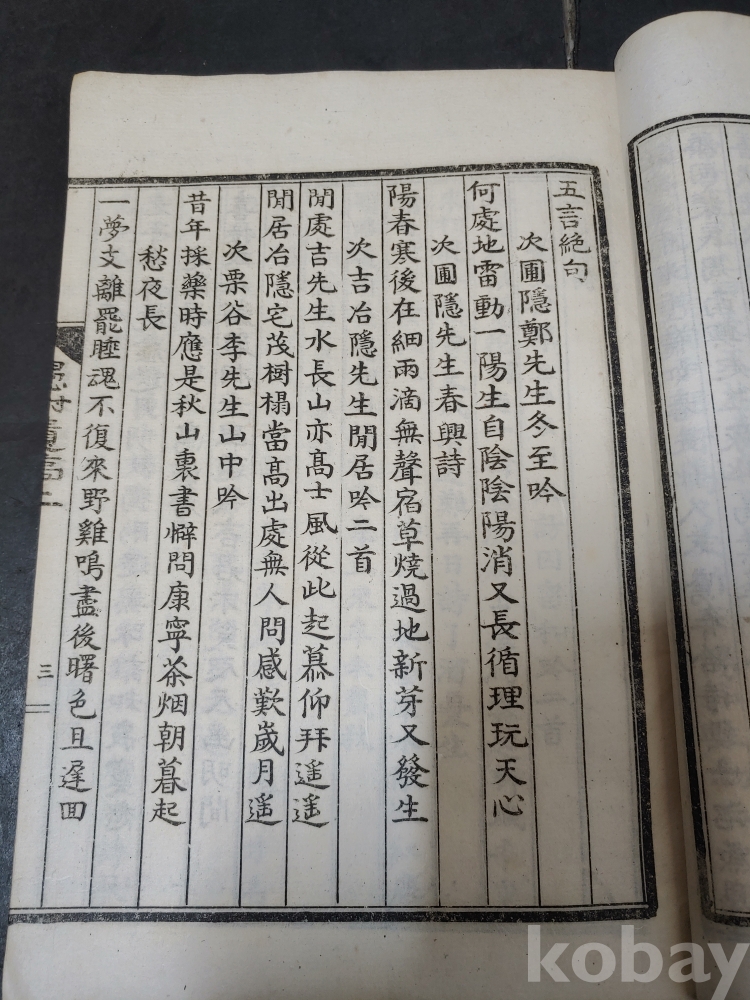 五言絕句
次圃隱鄭先生冬至吟
何處地雷動一陽生自陰陰陽消又長循理玩天心
次圃隱先生春興詩
陽春寒後在細雨滴無聲宿草燒過地新芽又發生
次吉冶隱先生閒居吟二首
閒處吉先生水長山亦高士風從此起慕仰拜遥遥
閒居冶隱宅茂樹榻當高出處無人問感歎歲月遥
次栗谷李先生山中吟
昔年採藥時應是秋山裏書懈問康寧茶烟朝暮起
愁夜長
一夢支離罷睡魂不復來野雞鳴盡後曙色且遅回
遺稿二
三
kobay